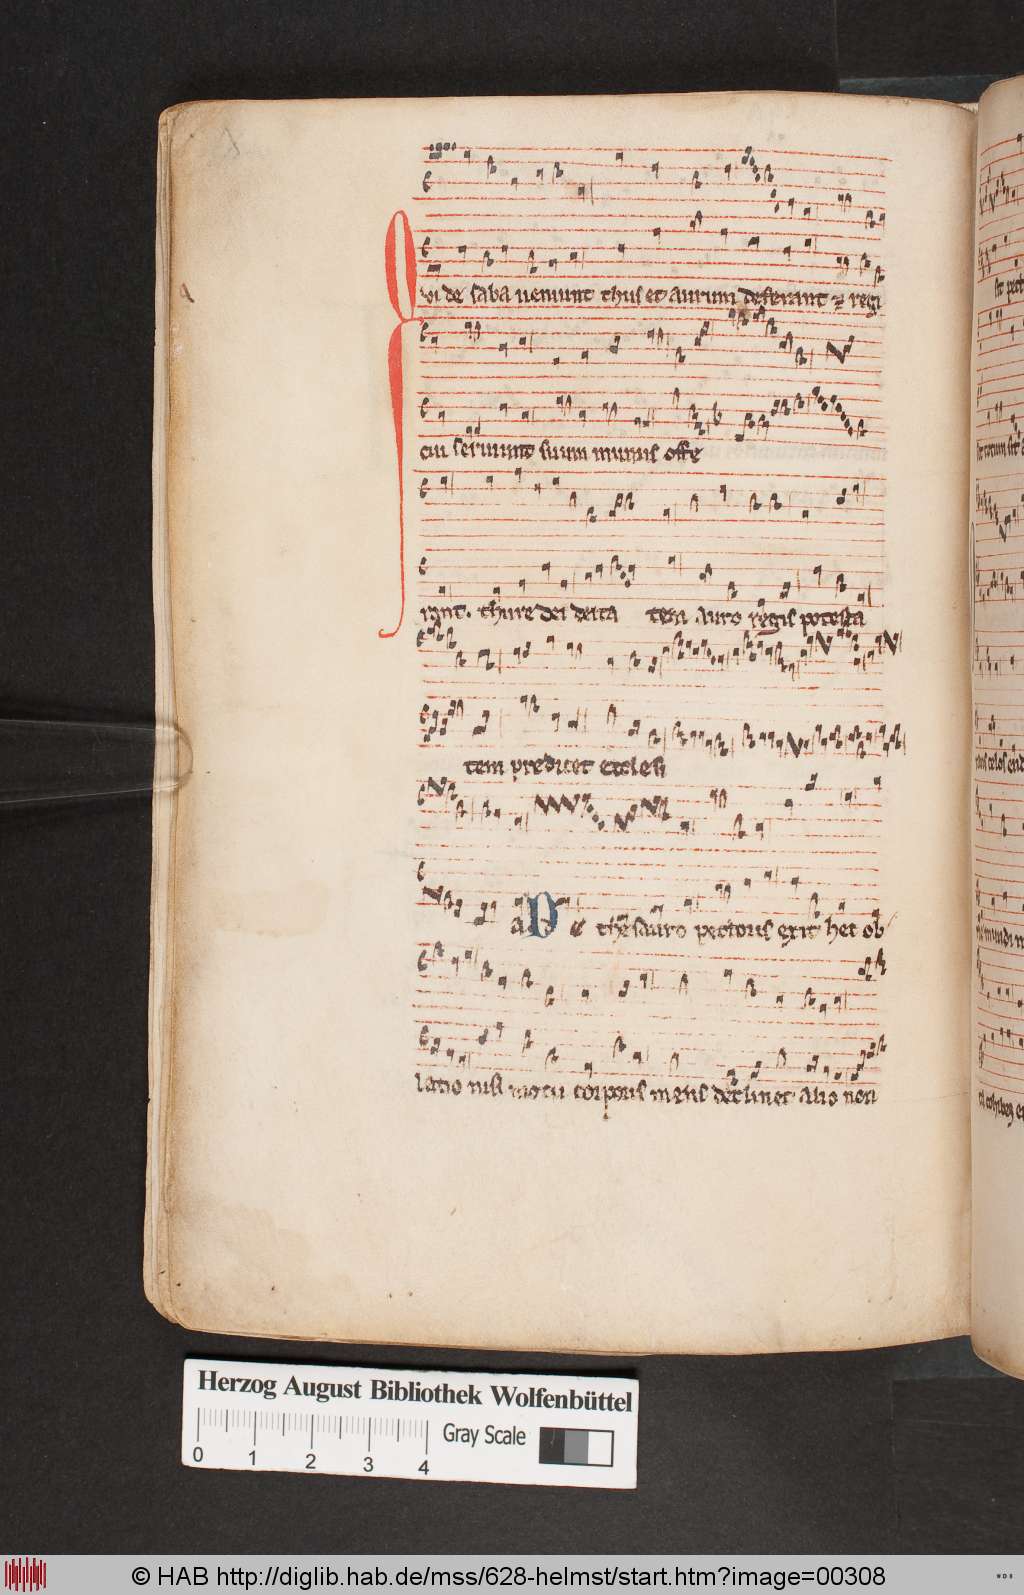 Qui de saba ueniunt thus et aurum deferunt ⁊ regi
cui seruiunt suum munus offe
runt. thure dei deita tem auro regis potesta
tem predicet ecclesi
a De thesauro pectoris exit hec ob
latio nisi motu corporis mens declinet alio non
Herzog August Bibliothek Wolfenbüttel
Gray Scale
0 1 2 3 4
© HAB http://diglib.hab.de/mss/628-helmst/start.htm?image=00308